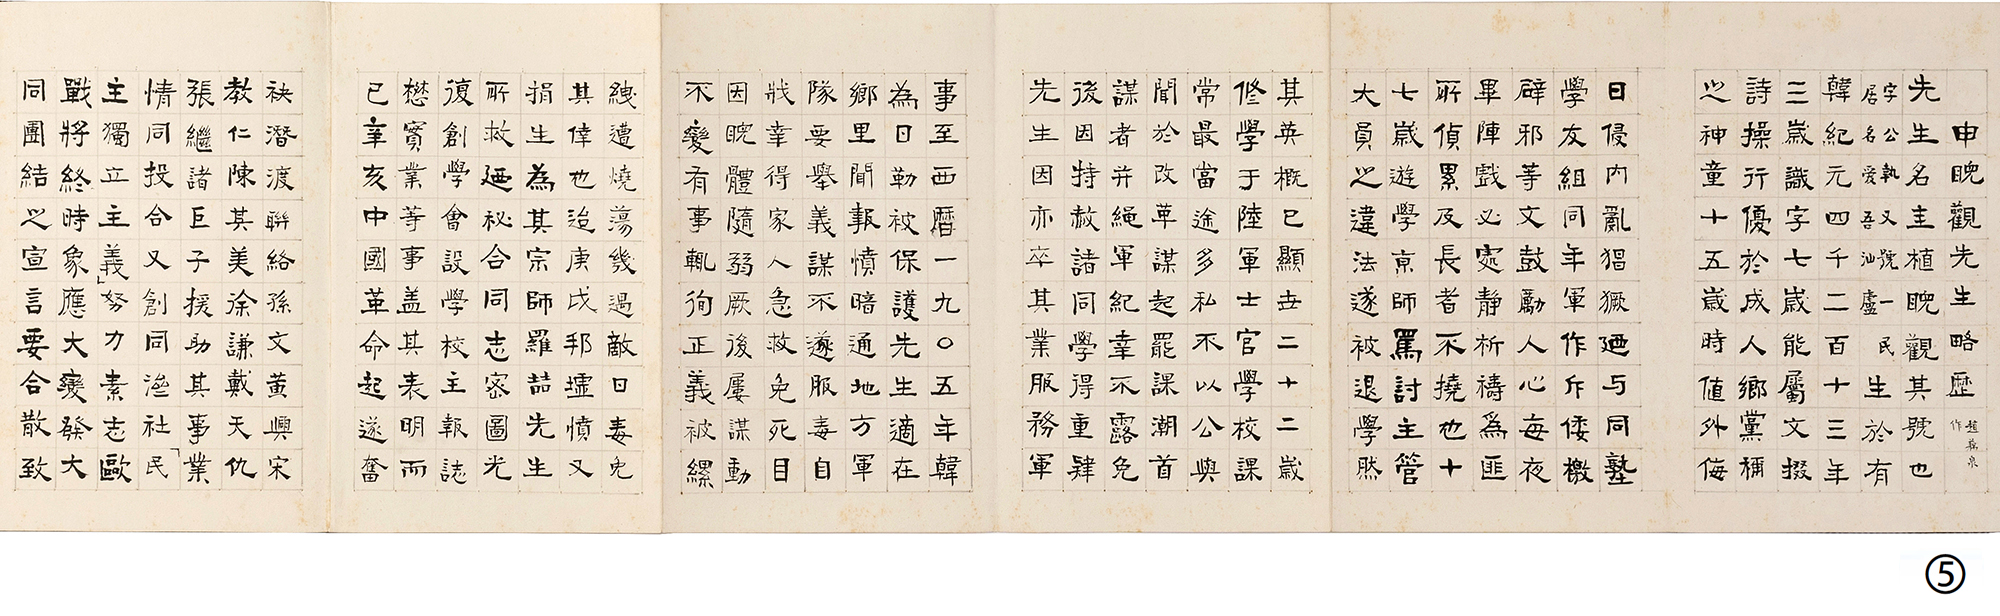 申睨觀先生略歷 趙素昂作
先生名主植睨觀其號也
字公執又號一民居名愛吾汕廬生於有
韓紀元四千二百十三年
三歲識字七歲能屬文掇
詩操行優於成人鄉黨稱
之神童十五歲時値外侮
日侵內亂猖獗廼与同塾
學友組同年軍作斥倭檄
辟邪等文鼓勵人心每夜
畢陣戲必處靜析禱爲匪
所偵累及長者不撓也十
七歲遊學京師罵討主管
大員之違法遂被退學然
其英概已顯世二十二歲
修學于陸軍士官學校課
常最當途多私不以公與
聞於改革謀起罷課潮首
謀者并繩軍紀幸不露免
後因特赦諸同學得重肄
先生因亦卒其業服務軍
事至西曆一九〇五年韓
為日勒被保護先生適在
鄉里聞報憤暗通地方軍
隊要舉義謀不遂服毒自
戕幸得家人急救免死目
因睨體隨弱厥後屢謀動
不變有事輒徇正義被縲
絏遭燒蕩幾過敵日毒免
其倖也迨庚戌邦墟憤又
捐生為其宗師羅喆先生
所救廼祕合同志密圖光
復創學會設學校主報誌
懋實業等事盖其表明而
已辛亥中國革命起遂奮
袂潛渡聯絡孫文黃興宋
教仁陳其美徐謙戴天仇
張繼諸巨子援助其事業
情同投合又創同濟社「民
主獨立主義」努力素志歐
戰將終時象應大變發大
同團結之宣言要合散致
⑤